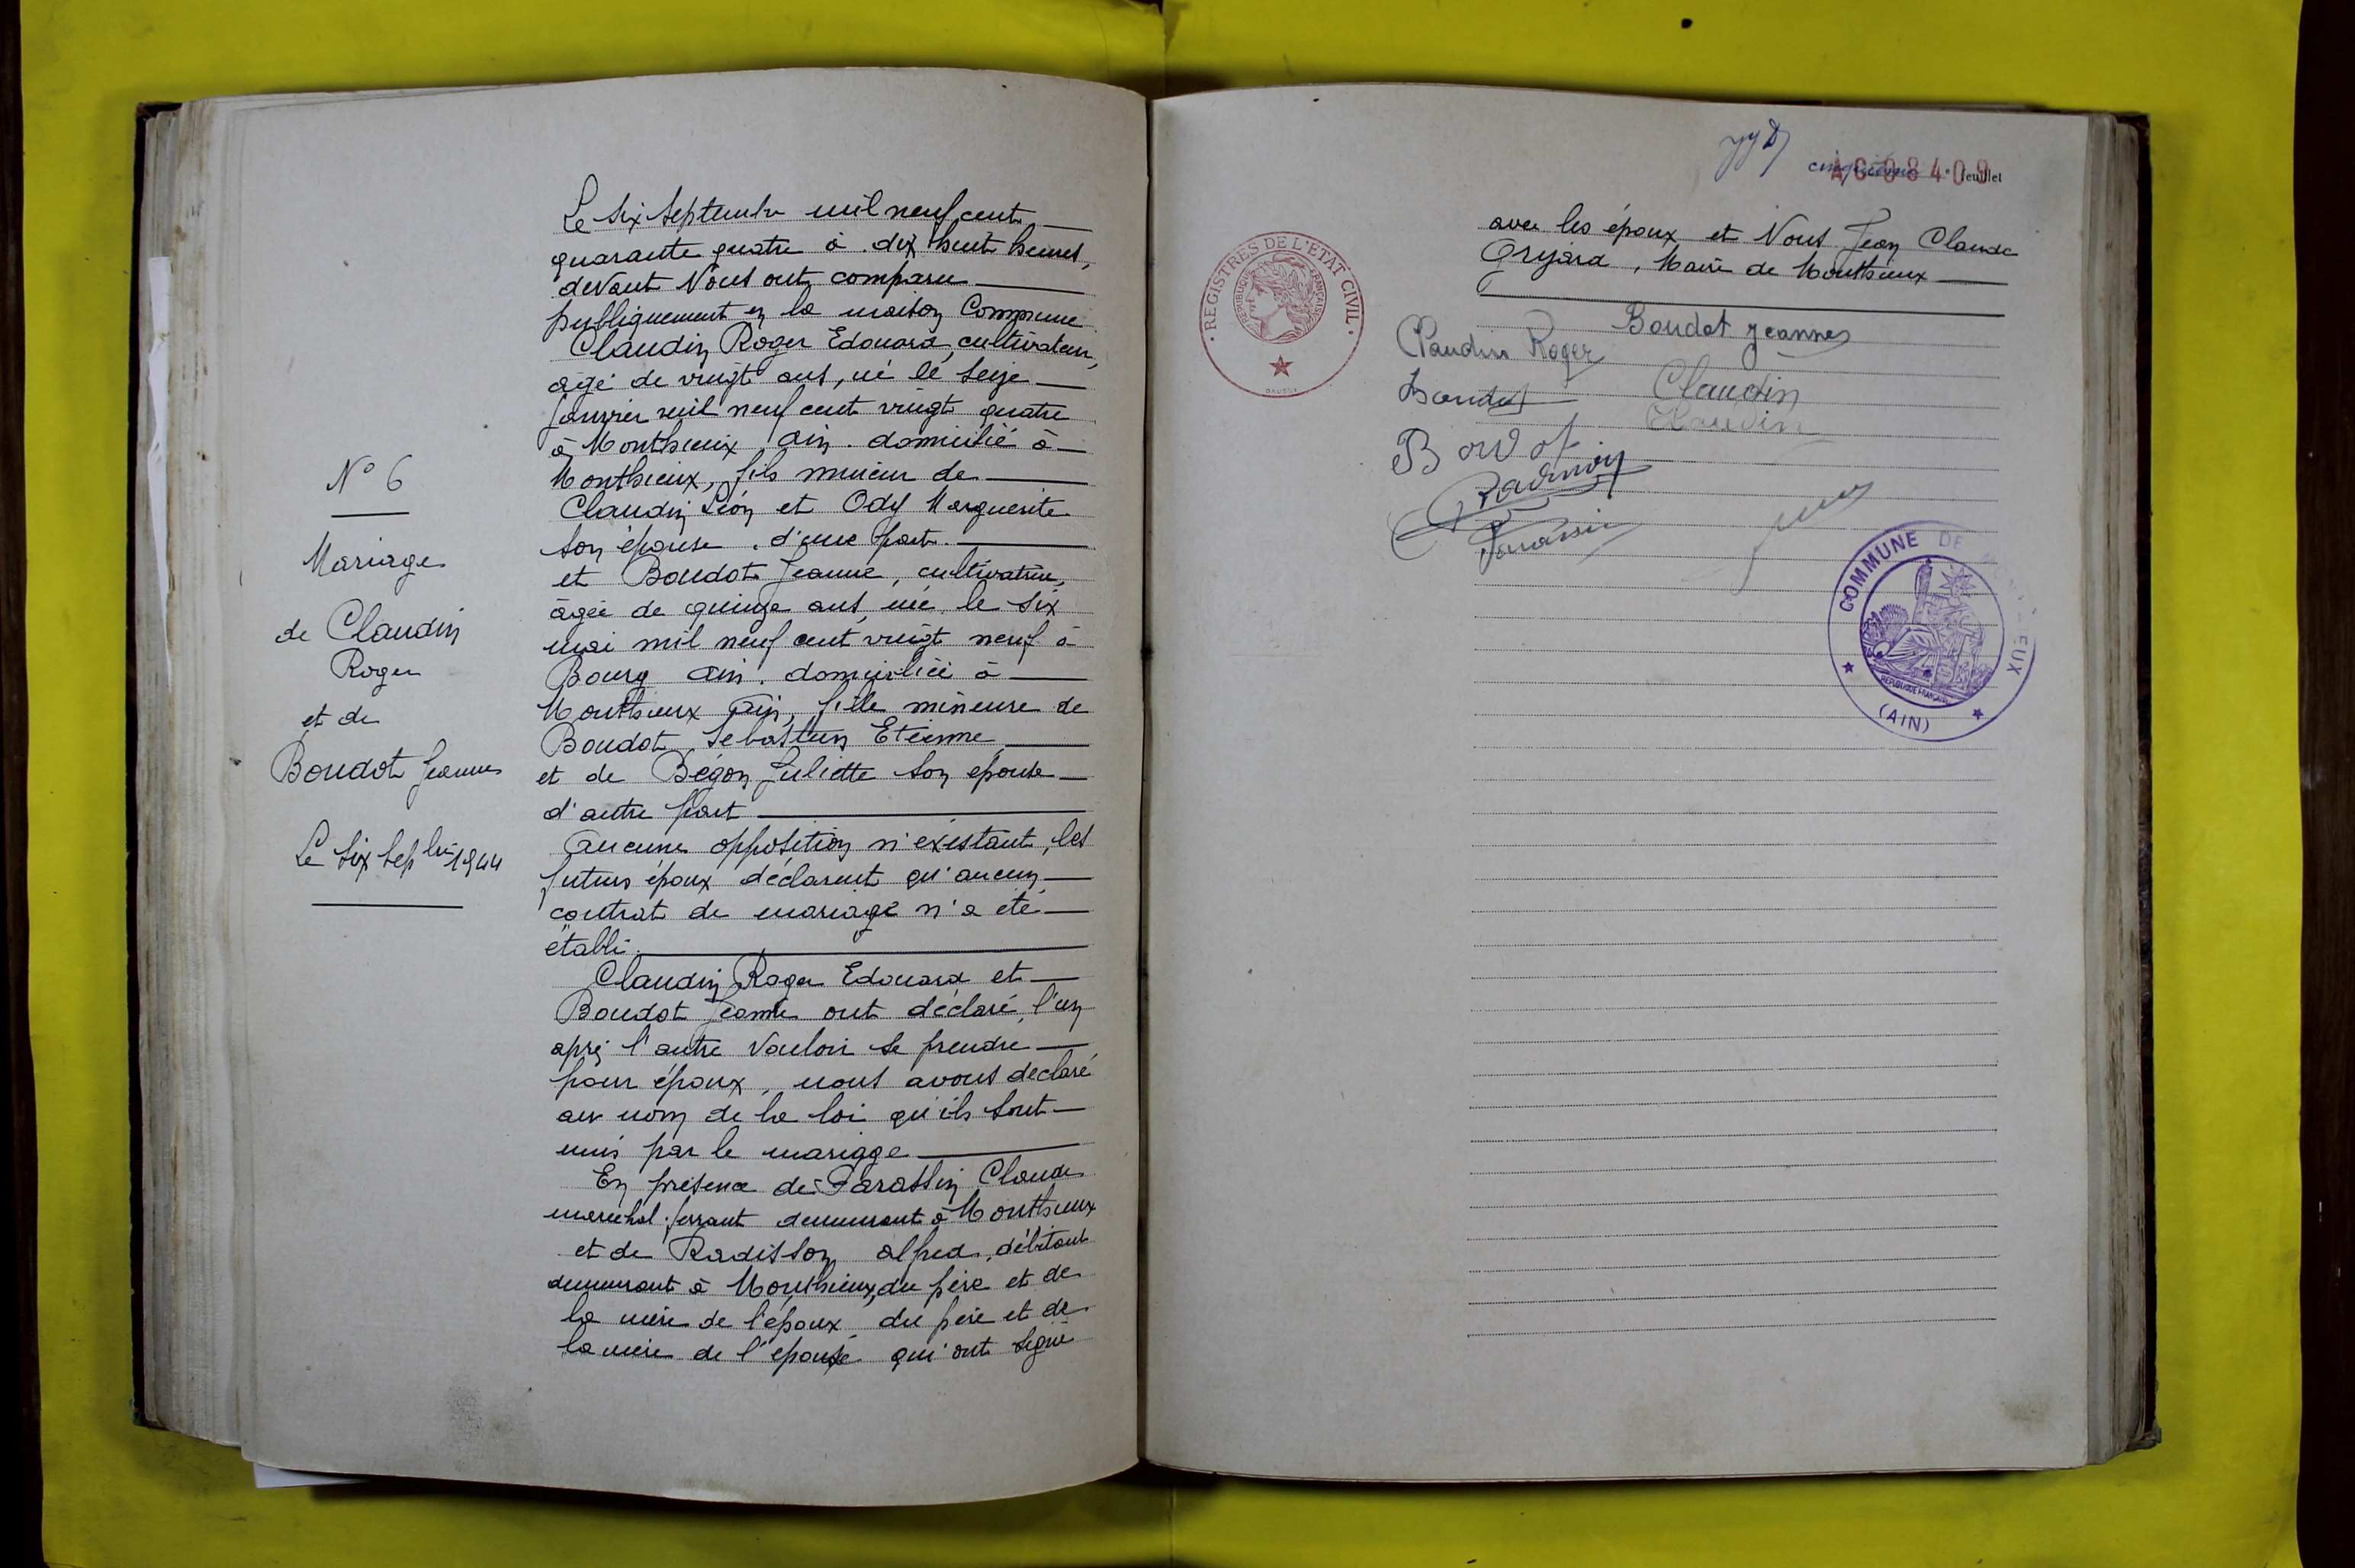 Le six septembre mil neuf cent
quarante quatre à dix huit heures,
devant Nous ont comparu
publiquement en la maison Commune
Claudin Roger Edouard, cultivateur,
âgé de vingt ans, né le seize
janvier mil neuf cent vingt quatre
à Monthieux Ain. domicilié à
Monthieux, fils mineur de
Claudin Léon et Ody Marguerite
son épouse. d'une part.
et Boudot Jeanne, cultivatrice,
âgée de quinze ans, née le six
mai mil neuf cent vingt neuf à
Bourg Ain. domiciliée à
Monthieux Ain, fille mineure de
Boudot Sébastien Etienne
et de Bégon Juliette son épouse
d'autre part
Aucune opposition n'existant, les
futurs époux déclarent qu'aucun
contrat de mariage n'a été
établi.
Claudin Roger Edouard et
Boudot Jeanne ont déclaré l'un
après l'autre vouloir se prendre
pour époux, nous avons déclaré
au nom de la loi qu'ils sont
unis par le mariage
En présence de Parassin Claude
maréchal-ferrant demeurant à Monthieux
et de Radisson Alfred, débitant
demeurant à Monthieux, du père et de
la mère de l'époux, du père et de
la mère de l'épouse qui ont signé
N° 6
Mariage
de Claudin
Roger
et de
Boudot Jeanne
Le six sepbre 1944
feuillet
avec les époux et Nous Jean Claude
, Maire de Monthieux
REGISTRES DE L'ETAT CIVIL
REPUBLIQUE FRANÇAISE
Boudot Jeanne
Claudin Roger
Boudot Claudin
Claudin
Boudot
Radisson
Parassin
COMMUNE DE EUX
REPUBLIQUE FRANÇAISE
(AIN)